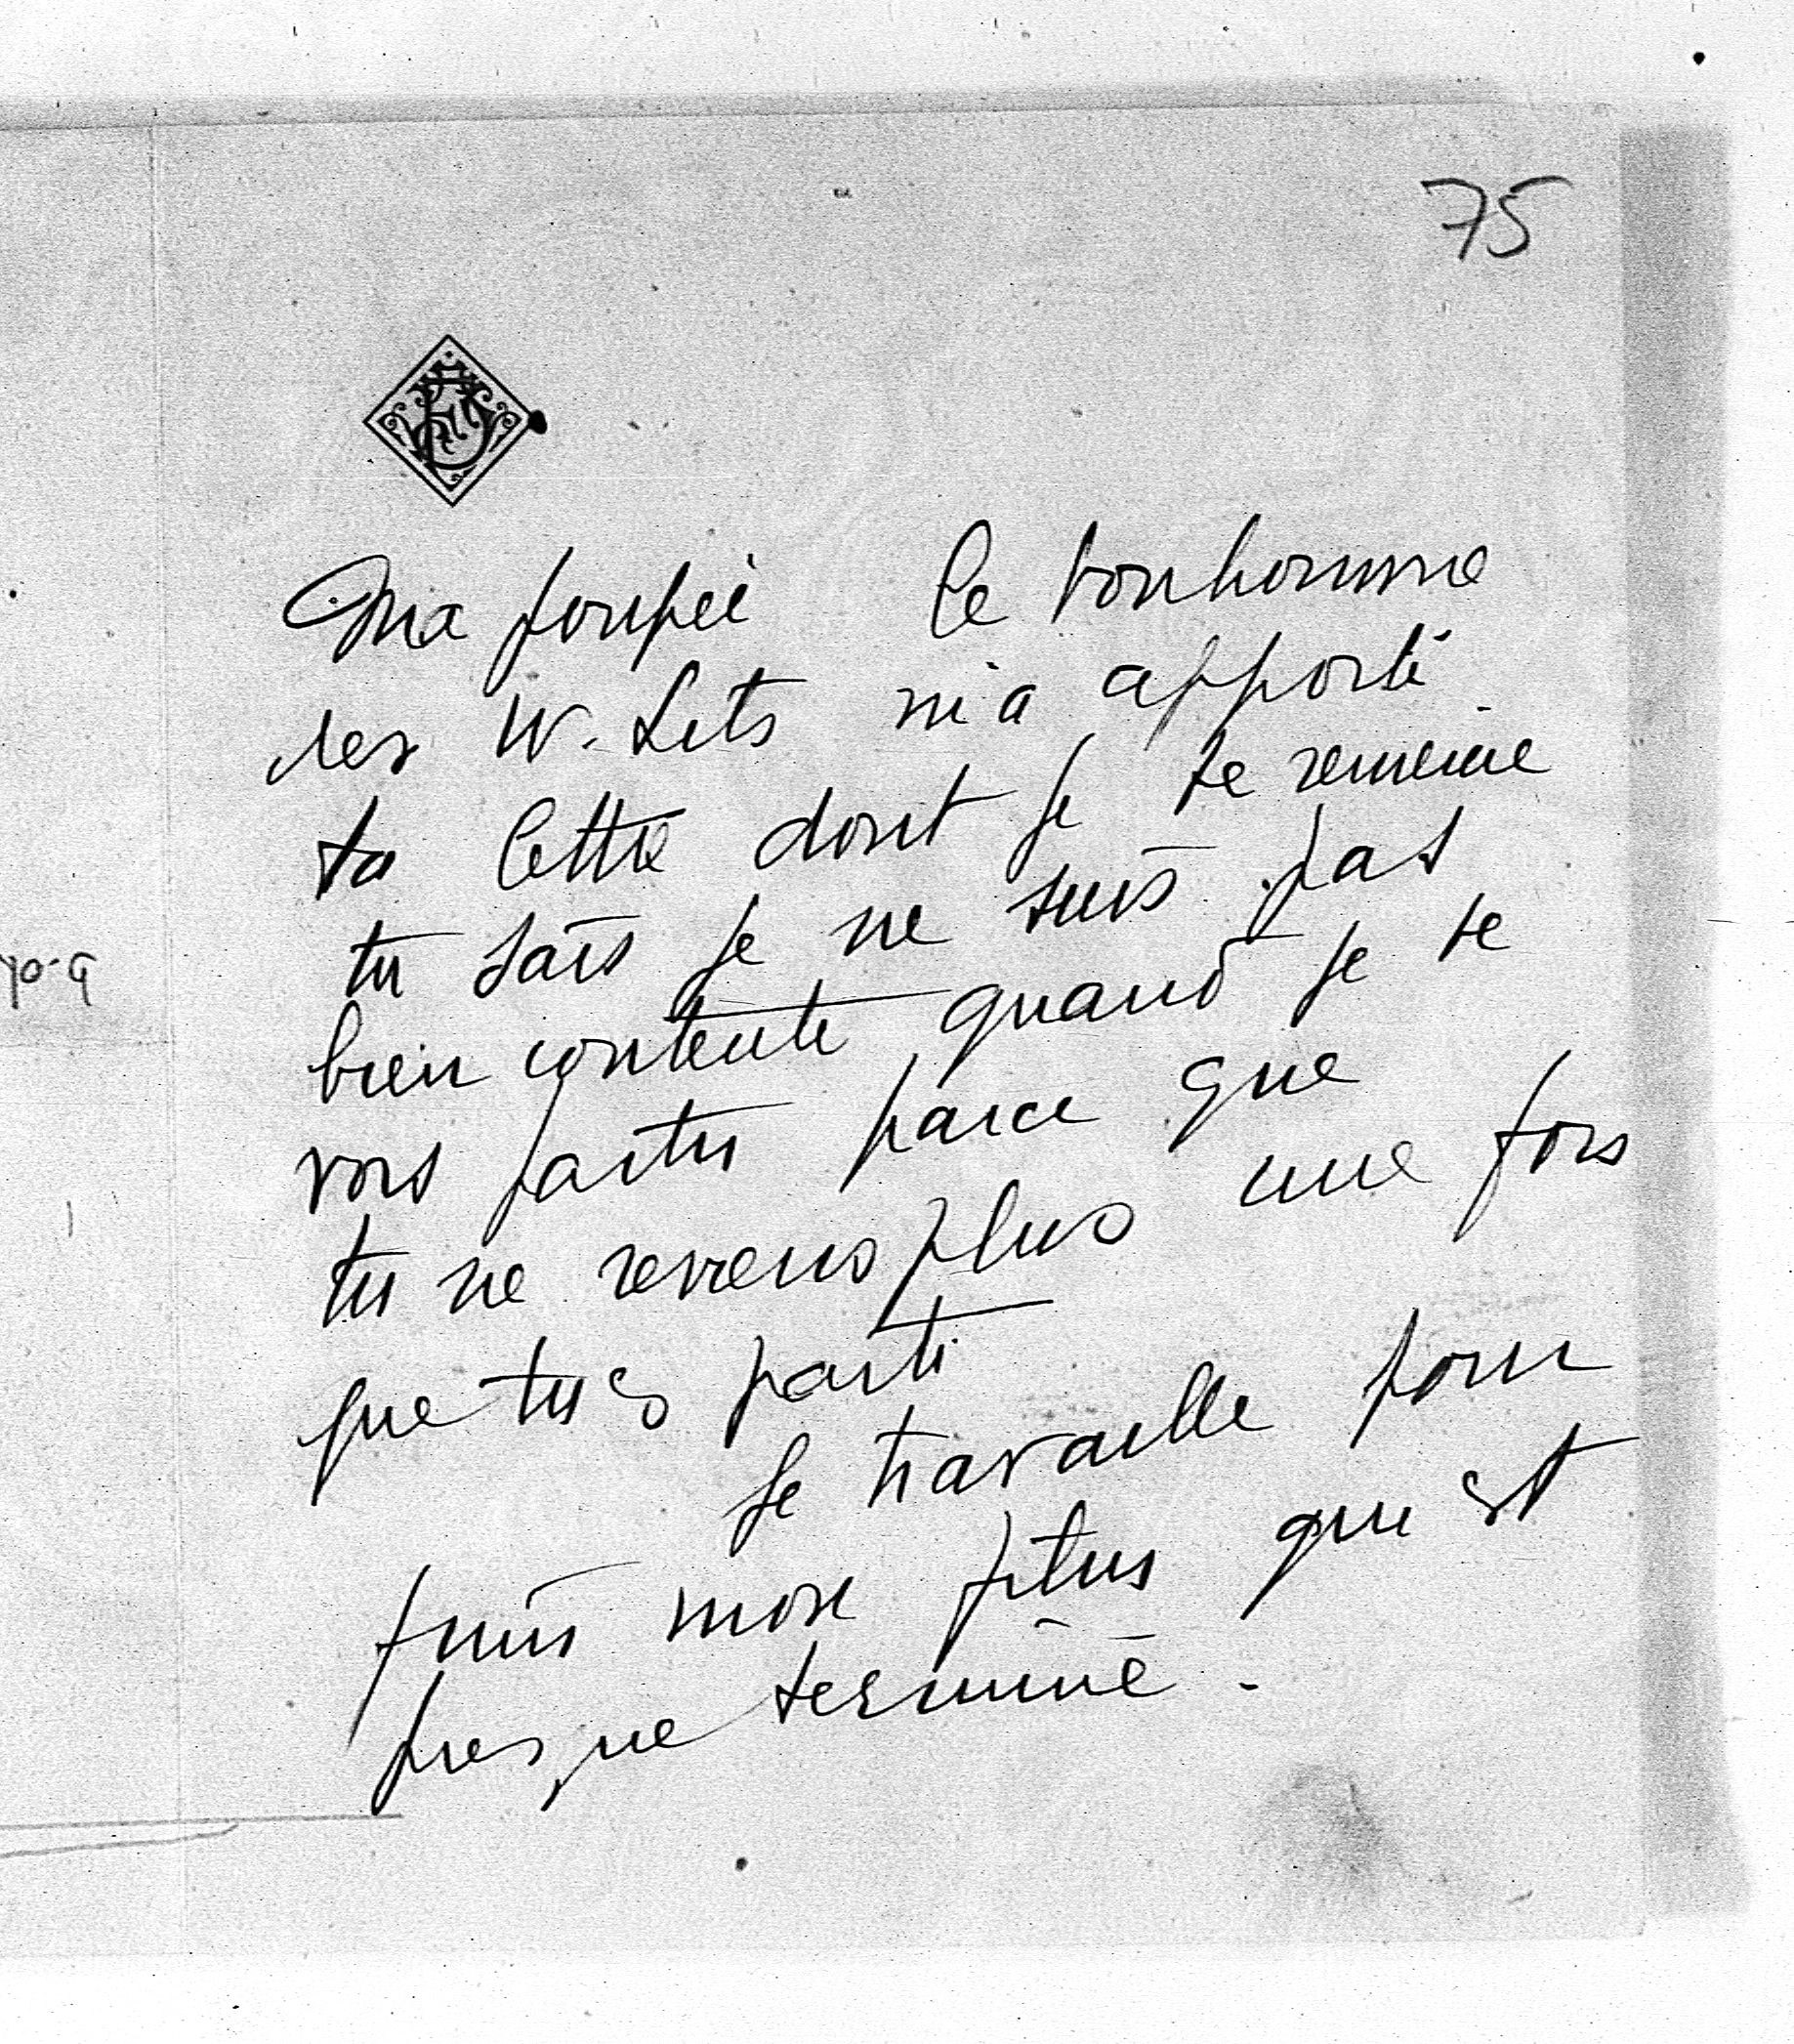 75
Ma poupée le bonhomme
des W. Lits m'a apporté
ta lettre dont je te remercie
tu sais je ne suis pas
bien contente quand je te
vois partir parce que
tu ne reviens plus une fois
que tu es parti
Je travaille pour
finir mon
qui est
presque terminé.